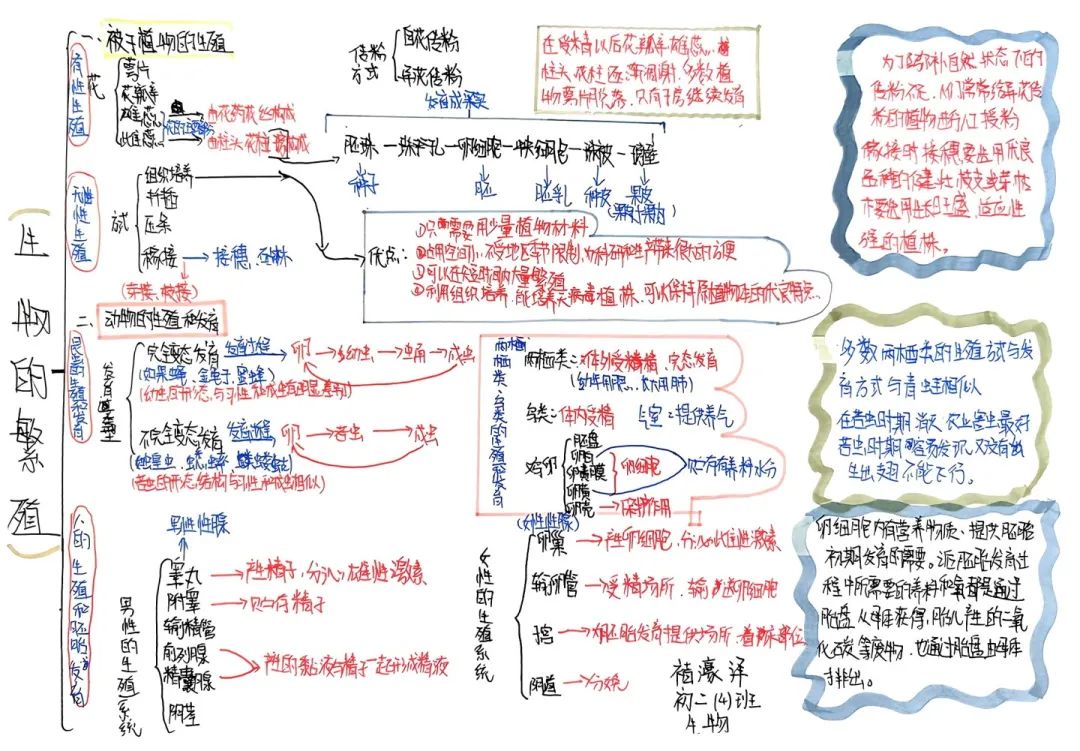 生物的繁殖
一、被子植物的生殖
有性生殖
花
萼片
花瓣
雄蕊
雌蕊
由花药花丝构成
由柱头花柱 构成
传粉方式
自花传粉
异花传粉
在受精以后花瓣、雄蕊、
柱头、花柱逐渐凋谢,多数植
物萼片脱落,只有子房继续发育
发育成果实
胚珠
珠孔
卵细胞
珠被
种子
胚
胚乳
种皮
果皮
无性生殖
组织培养
扦插
压条
嫁接
接穗、砧木
(芽接、枝接)
优点:
①只需要用少量植物材料
②占用空间小,不受地区季节限制,
③可以在短时间内大量繁殖
④利用组织培养,能培养无病毒植株,可以保持原植物
为了弥补自然状态下的
传粉不足,人们常常给异花传
粉的植物进行人工授粉
嫁接时接穗要选用优良
品种的健壮枝
木要选用生长旺盛、适应性
强的植株。
二、动物的生殖和发育
昆虫的生殖和发育
发育类型
完全变态发育
发育过程
卵
幼虫
蛹
成虫
(如果蝇、金龟子、蜜蜂)
(幼虫的形态、与习性和成虫有明显差别)
不完全变态发育
发育过程
卵
若虫
成虫
(若虫的形态结构与习性和成虫相似)
两栖类、鸟类的生殖和发育
两栖类:体外受精,变态发育
(幼体用鳃、成体用肺)
鸟类:体内受精
气室:提供养气
鸟卵
胚盘
卵白
卵黄膜
卵黄
卵壳
卵细胞
贮存有养料水分
保护作用
多数两栖类的生殖方式与发
育方式与青蛙相似
在若虫时期消灭农业害虫最好
若虫时期容易发现,又没有
生出翅不能飞行。
人的生殖和胚胎发育
男性的生殖系统
男性性腺
睾丸
产生精子,分泌雄性激素
附睾
贮存精子
输精管
前列腺
精囊腺
产生的黏液与精子一起形成精液
阴茎
女性的生殖系统
(女性性腺)
卵巢
产生卵细胞,分泌雌性激素
输卵管
受精场所,输送卵细胞
宫
对胚胎发育提供场所,着床部位
阴道
分娩
卵细胞内有营养物质、提供胚胎
初期发育的需要。
程中所需要的养料和氧都是通过
胎盘从母体获得,胎儿产生的二氧
化碳等废物,也通过胎盘由母体
排出。
初二(4)班
生物